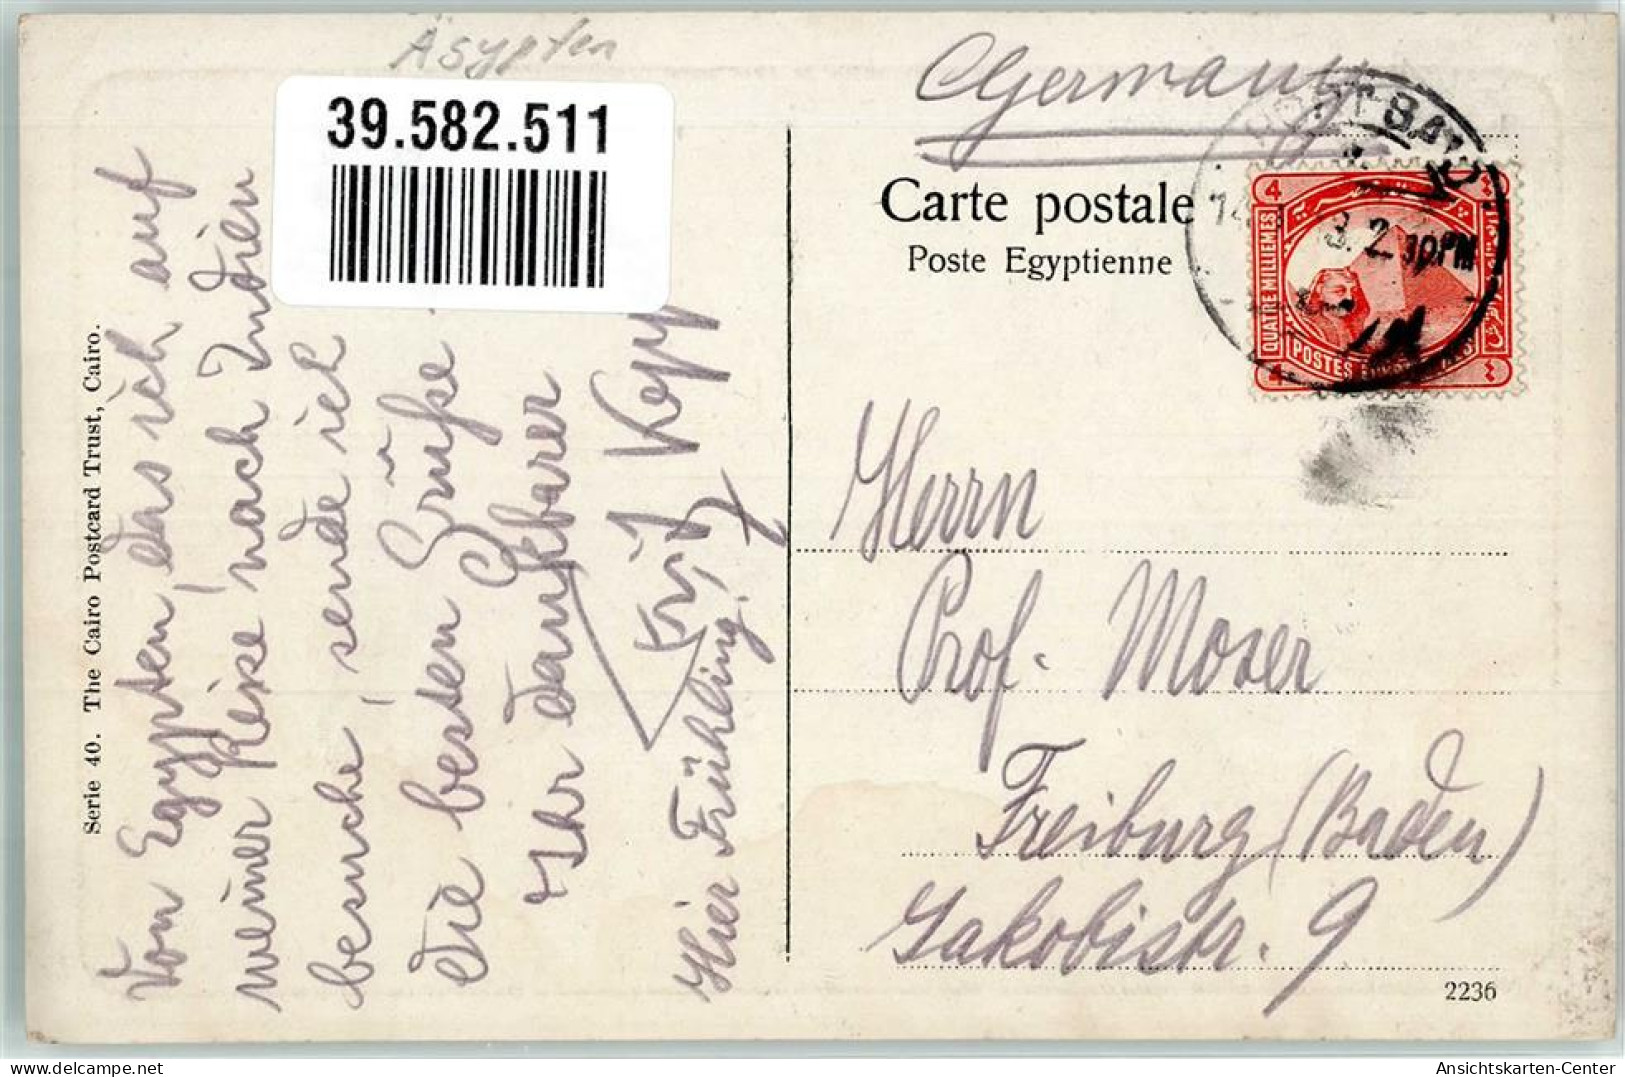 Äsypten
39.582.511
Serie 40. The Cairo Postcard Trust, Cairo.
Von Egypten, das ich auf
meiner Reise nach Indien
besuche, sende ich
die besten Grüße
Ihr dankbarer
Hier Frühling!
Germany
Carte postale
Poste Egyptienne
PORT SAID
2 10 PM
4
QUATRE MILLIEMES
POSTES
4
Herrn
Prof. Moser
Freiburg (Baden)
Jakobistr. 9
2236
www.delcampe.net
Ansichtskarten-Center